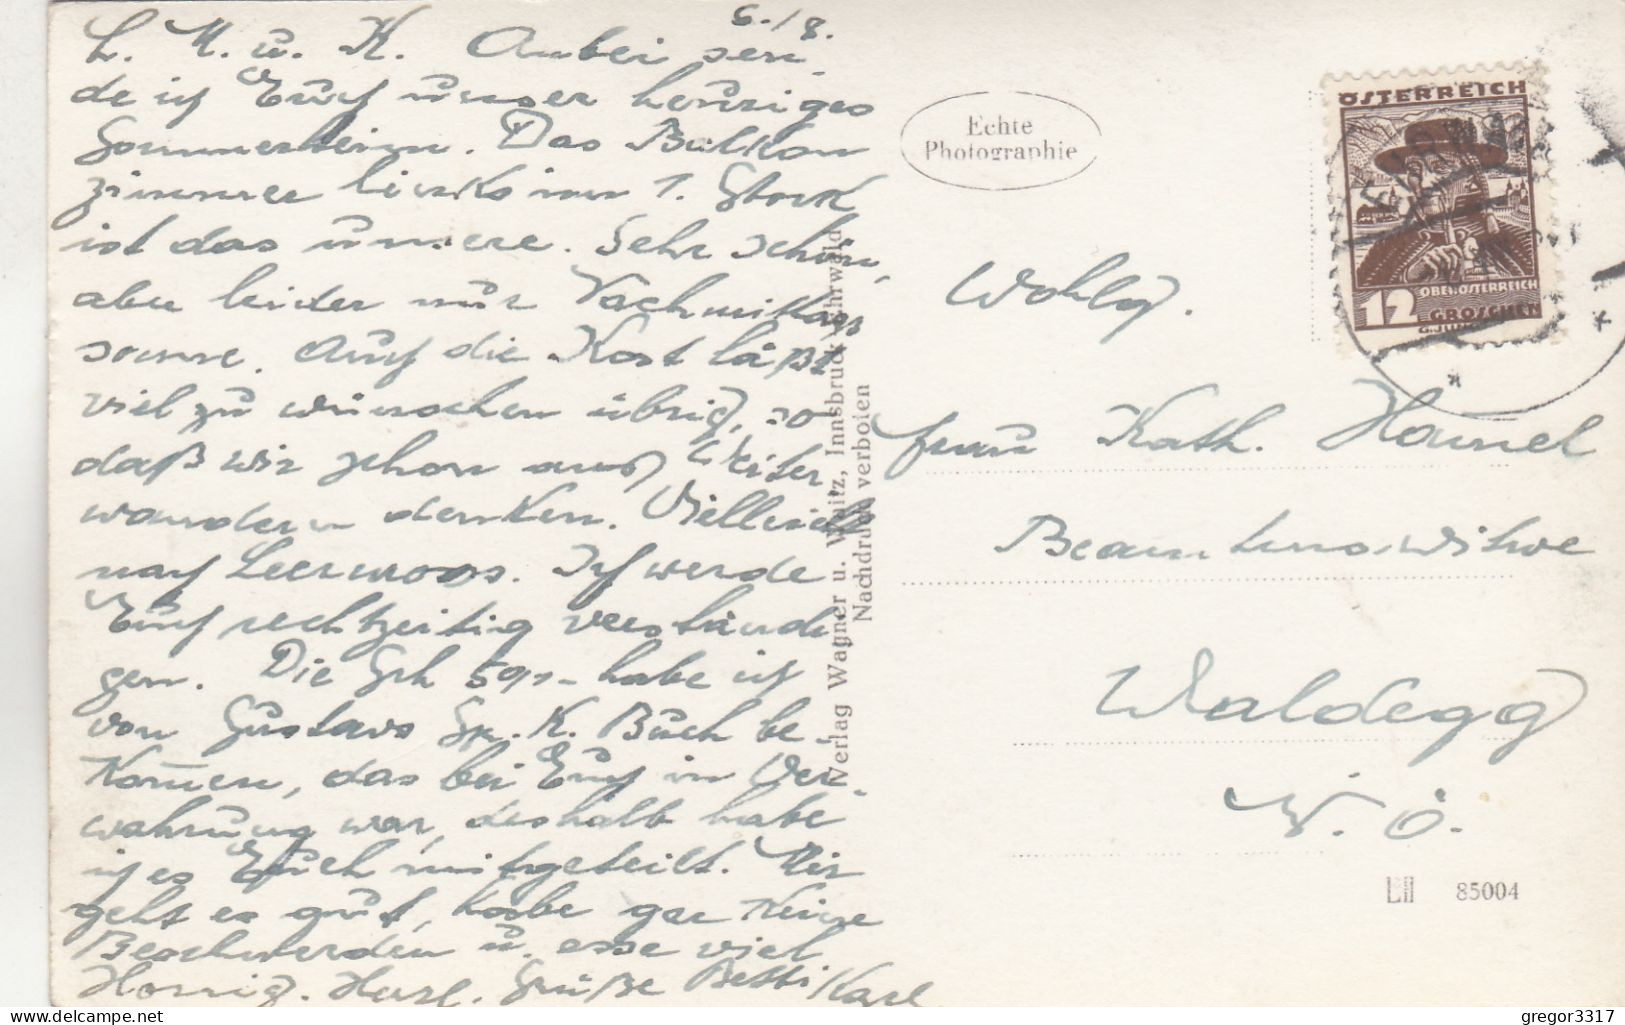 6./8.
L. M. u. K. Anbei sen-
de ich Euch unser heuriges
Sommerheim. Das Balkon
zimmer links im 1. Stock
ist das unsere. Sehr schön,
aber leider nur Nachmittags
sonne. Auf die Kost läßt
viel zu wünschen übrig, so
daß wir schon ans Weiter
wandern denken. Vielleicht
nach Leermoos. Ich werde
Euch rechtzeitig verständi
gen. Die Sch habe ich
von Gustavs Sp. K. Buch be-
kommen, das bei Euch in Ver-
wahrung war, deshalb habe
ich es Euch mitgeteilt. Mir
geht es gut, habe gar keine
Beschwerden u. esse viel
Honig. Herzl. Grüße Betti / Karl
Echte
Photographie
ÖSTERREICH
12
OBERÖSTERREICH
GROSCHEN
Wohlg.
Frau Kath. Hanel
Beamtenswitwe
Waldegg
N. Ö.
Verlag Wagner u. Innsbruck Ehrwald
Nachdruck verboten
85004
www.delcampe.net
gregor3317